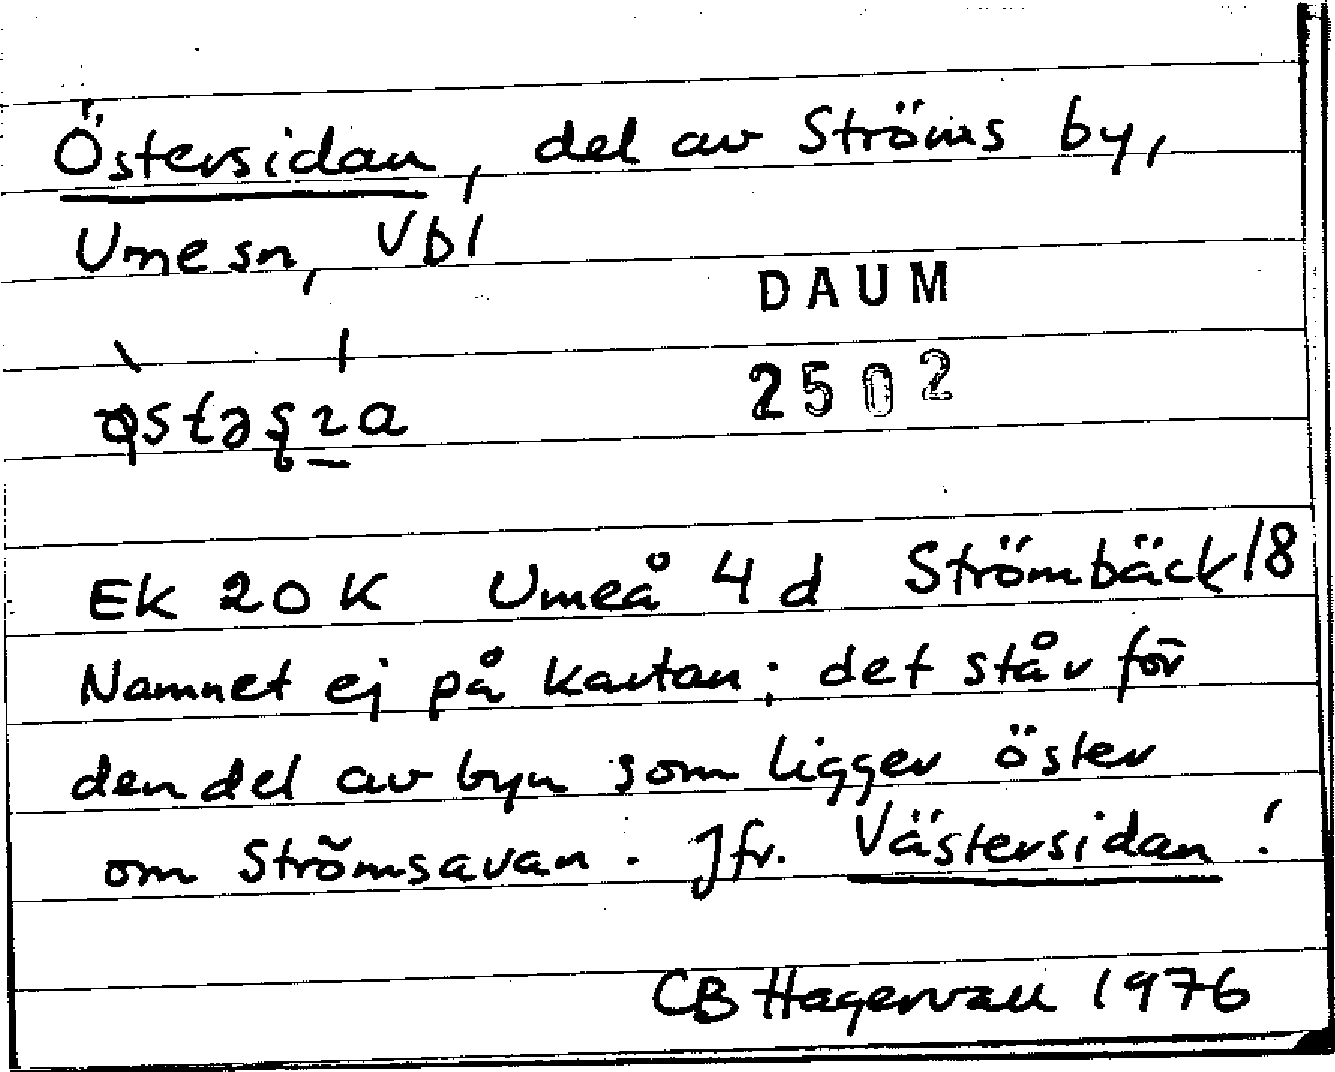 Östersidan, del av Ströms by,
Umesn, Vbl
DAUM
2502
EK 20 K Umeå 4 d Strömbäck/8
Namnet ej på kartan; det står för
den del av byn som ligger öster
om Strömsavan. Jfr. Västersidan!
CB Hagervall 1976